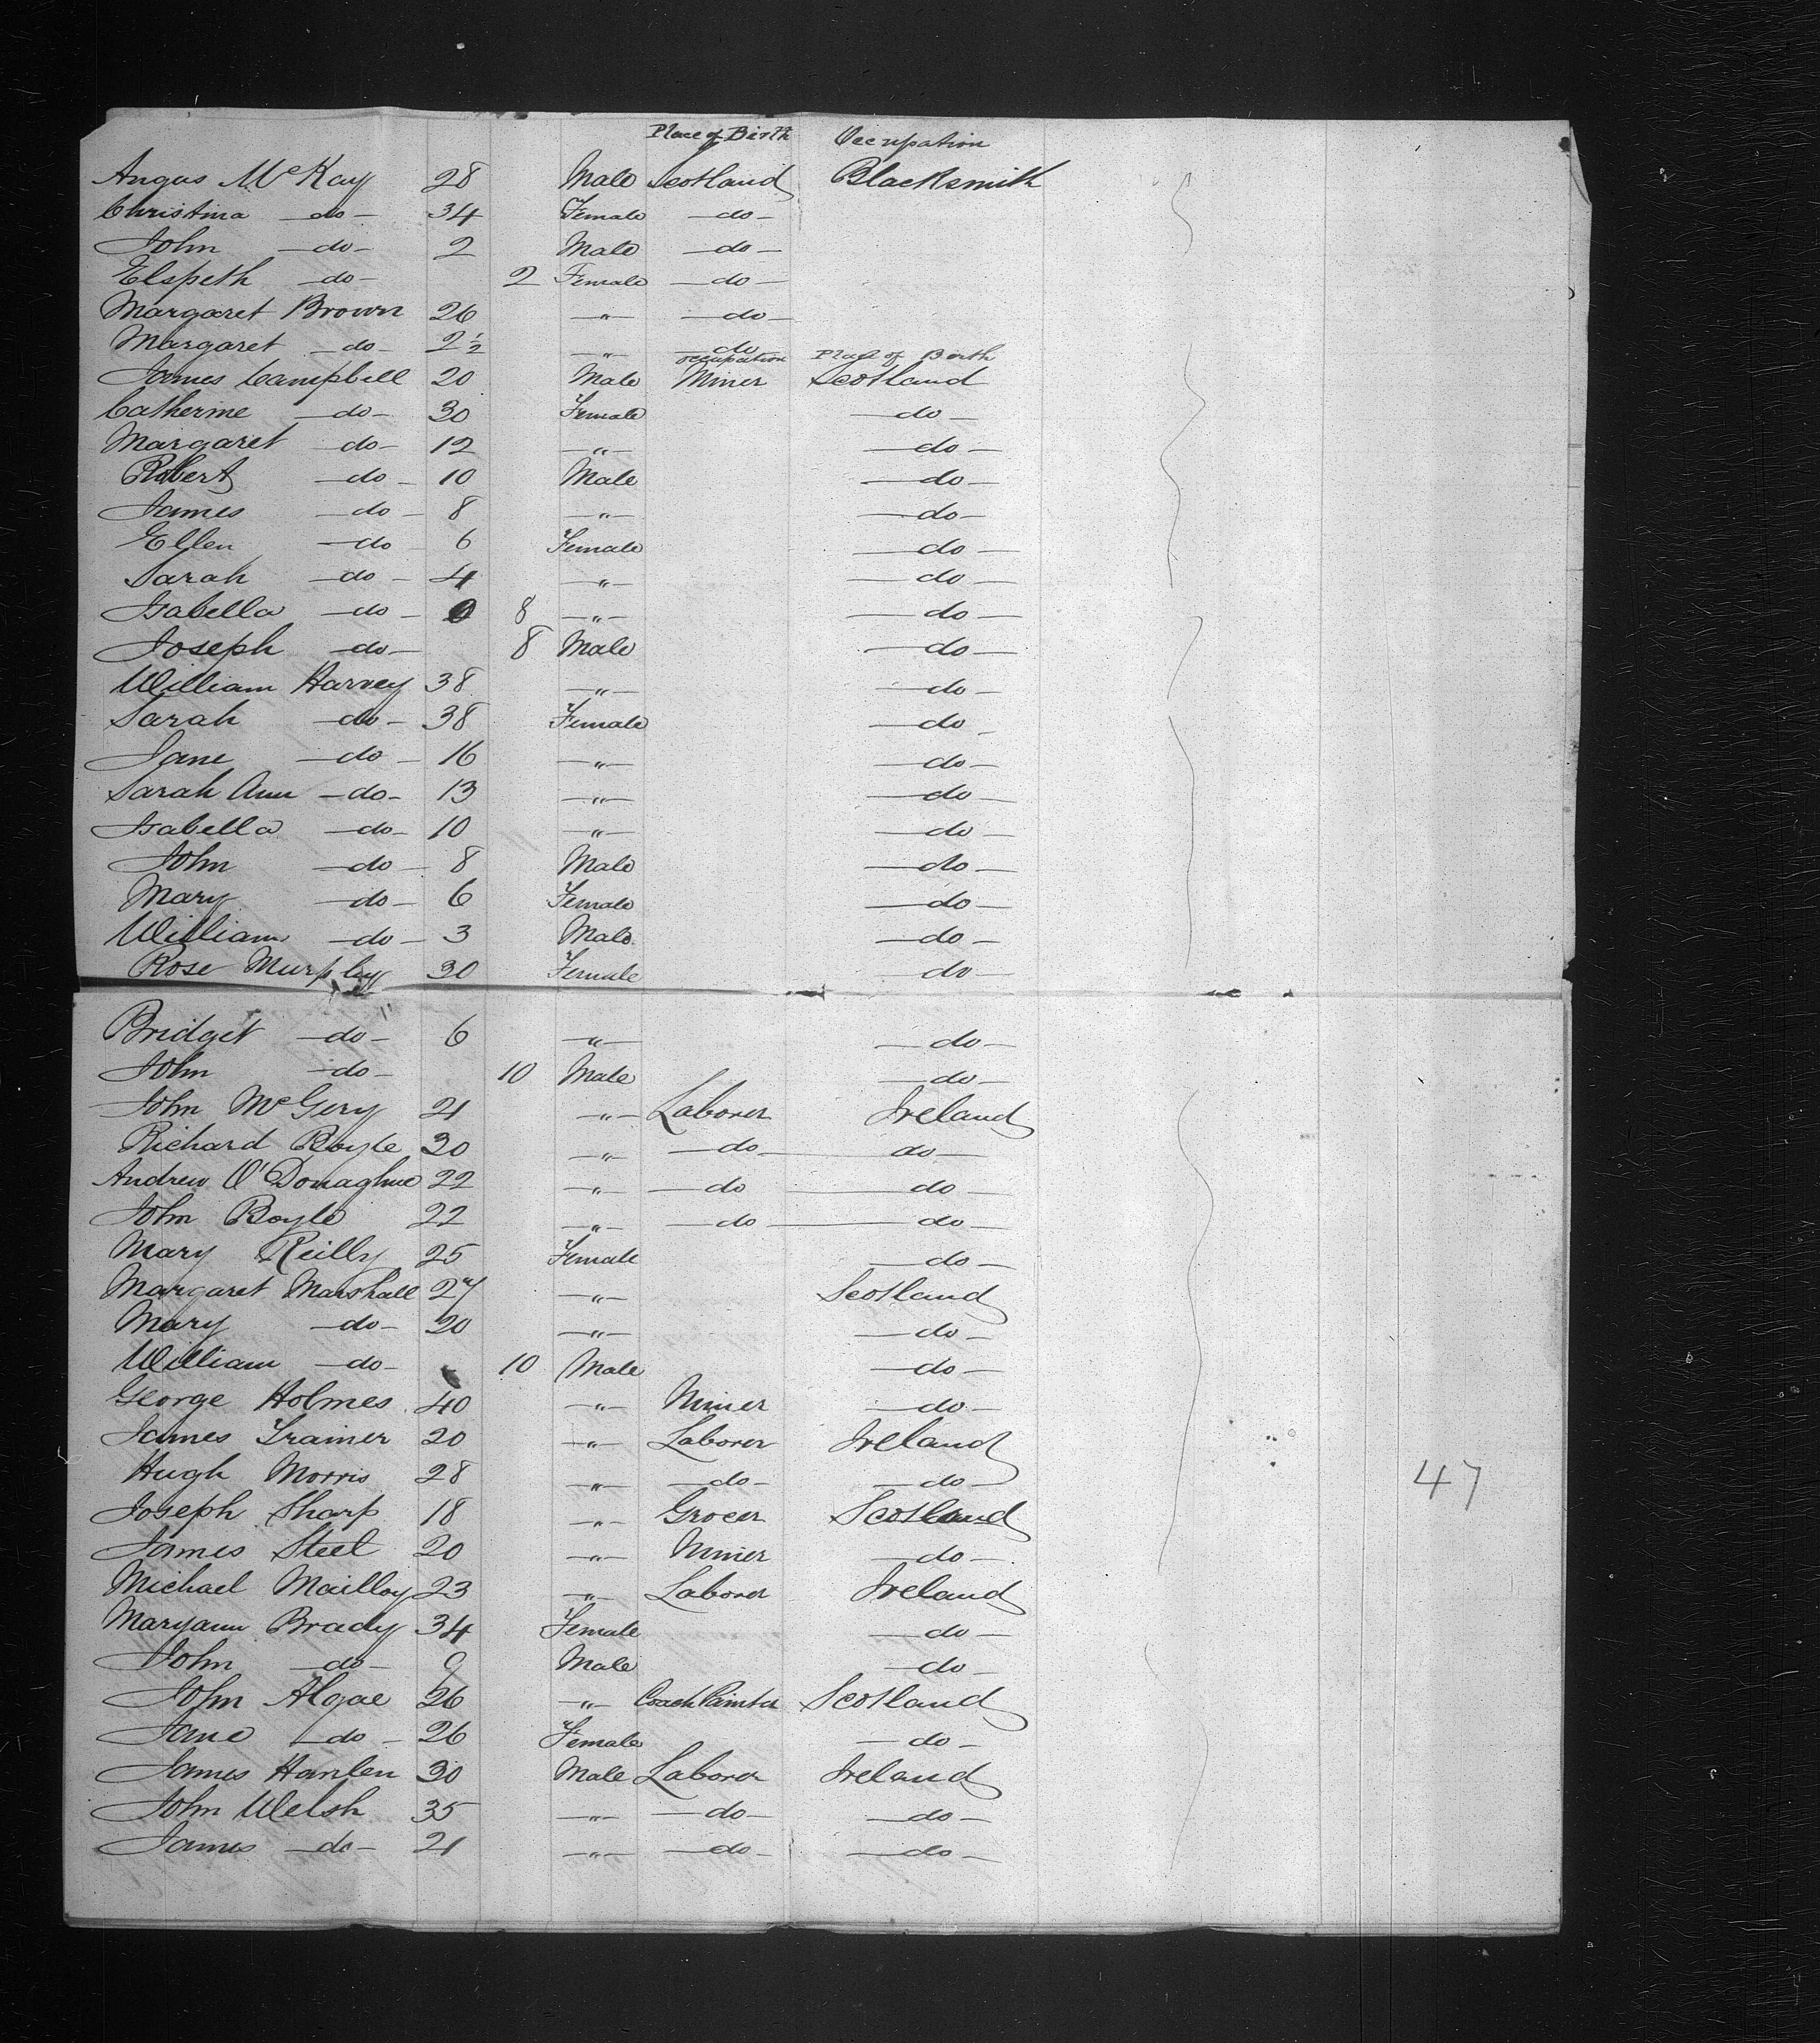 Place of Birth Occupation
Angus McKay 28 Male Scotland Blacksmith
Christina -do- 34 Female -do-
John -do- 2 Male -do-
Elspeth -do- 2 Female -do-
Margaret Brown 26 -"- -do-
Margaret -do- 2½ -"- -do-
occupation Place of Birth
James Campbell 20 Male Miner Scotland
Catherine -do- 30 Female -do-
Margaret -do- 12 -"- -do-
Robert -do- 10 Male -do-
James -do- 8 -"- -do-
Ellen -do- 6 Female -do-
Sarah -do- 4 -"- -do-
Isabella -do- 8 -"- -do-
Joseph -do- 8 Male -do-
William Harvey 38 -"- -do-
Sarah -do- 38 Female -do-
Jane -do- 16 -"- -do-
Sarah Ann -do- 13 -"- -do-
Isabella -do- 10 -"- -do-
John -do- 8 Male -do-
Mary -do- 6 Female -do-
William -do- 3 Male -do-
Rose Murphy 30 Female do-
Bridget -do- 6 -"- -do-
John -do- 10 Male -do-
John McGery 21 -"- Laborer Ireland
Richard Boyle 30 -"- -do- do-
Andrew O'Donaghue 22 -"- -do -do-
John Boyle 22 -"- -do -do-
Mary Reilly 25 Female -do-
Margaret Marshall 27 -"- Scotland
Mary -do- 20 -"- -do-
William -do- 10 Male -do-
George Holmes 40 -"- Miner -do-
James Trainer 20 -"- Laborer Ireland
Hugh Morris 28 -"- -do- -do-
47
Joseph Sharp 18 -"- Grocer Scotland
James Steel 20 -"- Miner -do-
Michael Mailloy 23 -"- Laborer Ireland
Maryann Brady 34 Female -do-
John -do- 9 Male -do-
John Algae 26 -"- Coach Painter Scotland
Jane -do- 26 Female -do-
James Hanlen 30 Male Laborer Ireland
John Welsh 35 -"- -do- -do-
James -do- 21 -"- -do- -do-